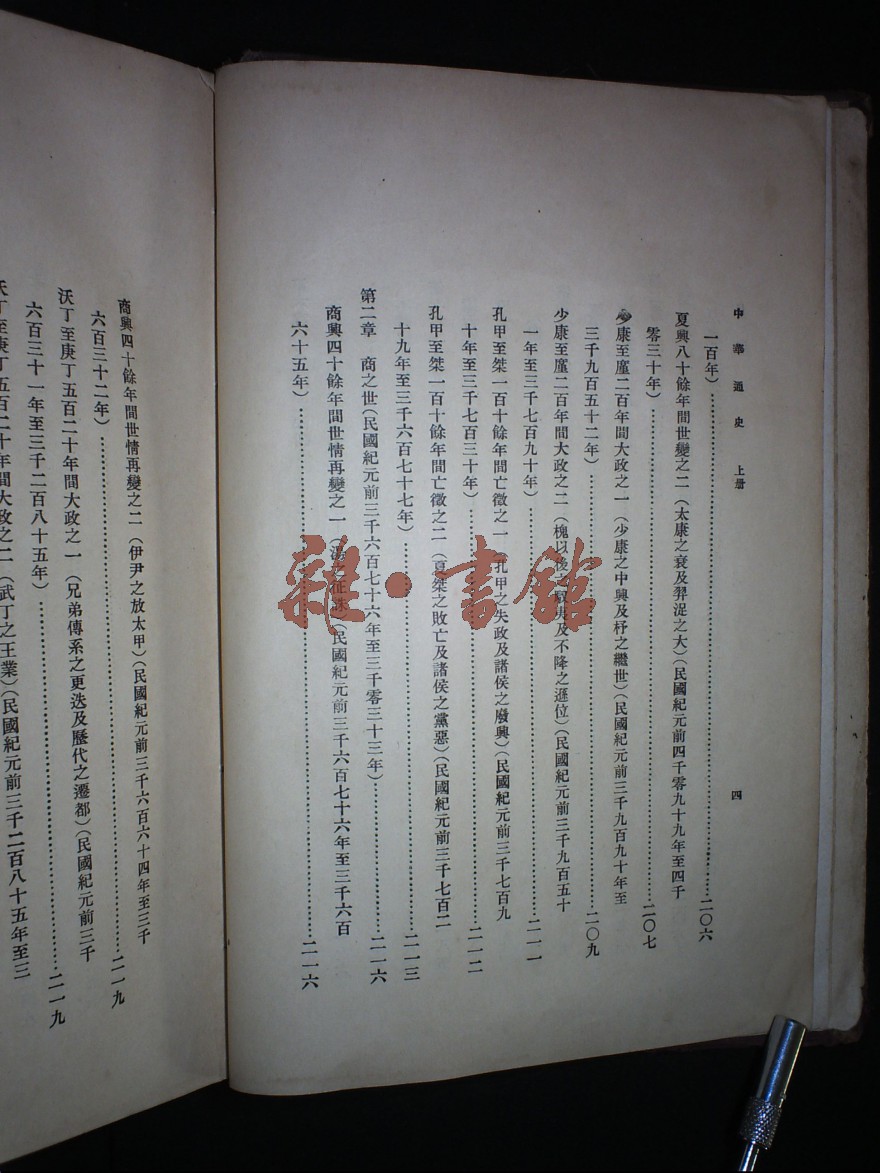 中華通史　上册
四
一百年）……二〇六
夏興八十餘年間世變之二（太康之衰及羿浞之大）（民國紀元前四千零九十九年至四千
零三十年）……二〇七
少康至廑二百年間大政之一（少康之中興及杼之繼世）（民國紀元前三千九百九十年至
三千九百五十二年）……二〇九
少康至廑二百年間大政之二（槐以後之馭夷及不降之遜位）（民國紀元前三千九百五十
一年至三千七百九十年）……二一一
孔甲至桀一百十餘年間亡徵之一（孔甲之失政及諸侯之廢興）（民國紀元前三千七百九
十年至三千七百三十年）……二一二
孔甲至桀一百十餘年間亡徵之二（夏桀之敗亡及諸侯之黨惡）（民國紀元前三千七百二
十九年至三千六百七十七年）……二一三
第二章　商之世（民國紀元前三千六百七十六年至三千零三十三年）……二一六
商興四十餘年間世情再變之一（湯之征誅）（民國紀元前三千六百七十六年至三千六百
六十五年）……二一六
商興四十餘年間世情再變之二（伊尹之放太甲）（民國紀元前三千六百六十四年至三千
六百三十二年）……二一九
沃丁至庚丁五百二十年間大政之一（兄弟傳系之更迭及歷代之遷都）（民國紀元前三千
六百三十一年至三千二百八十五年）……二一九
沃丁至庚丁五百二十年間大政之二（武丁之王業）（民國紀元前三千二百八十五年至三
雜·書館